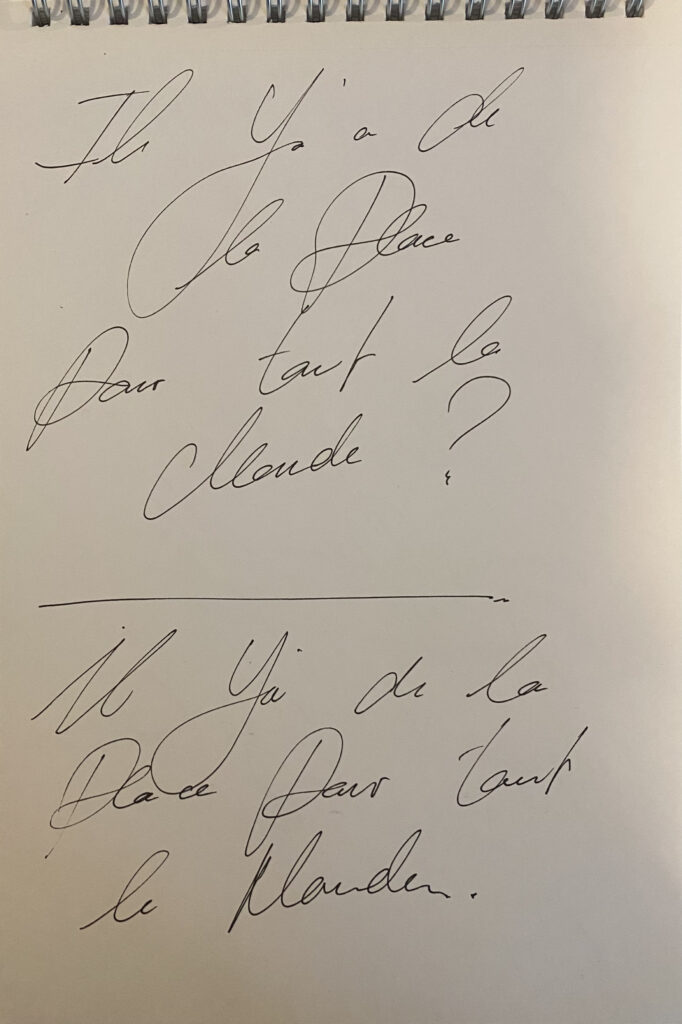 Il Ya a de
la Place
Pour tout le
Monde ?
Il Ya de la
Place Pour tout
le Monde.